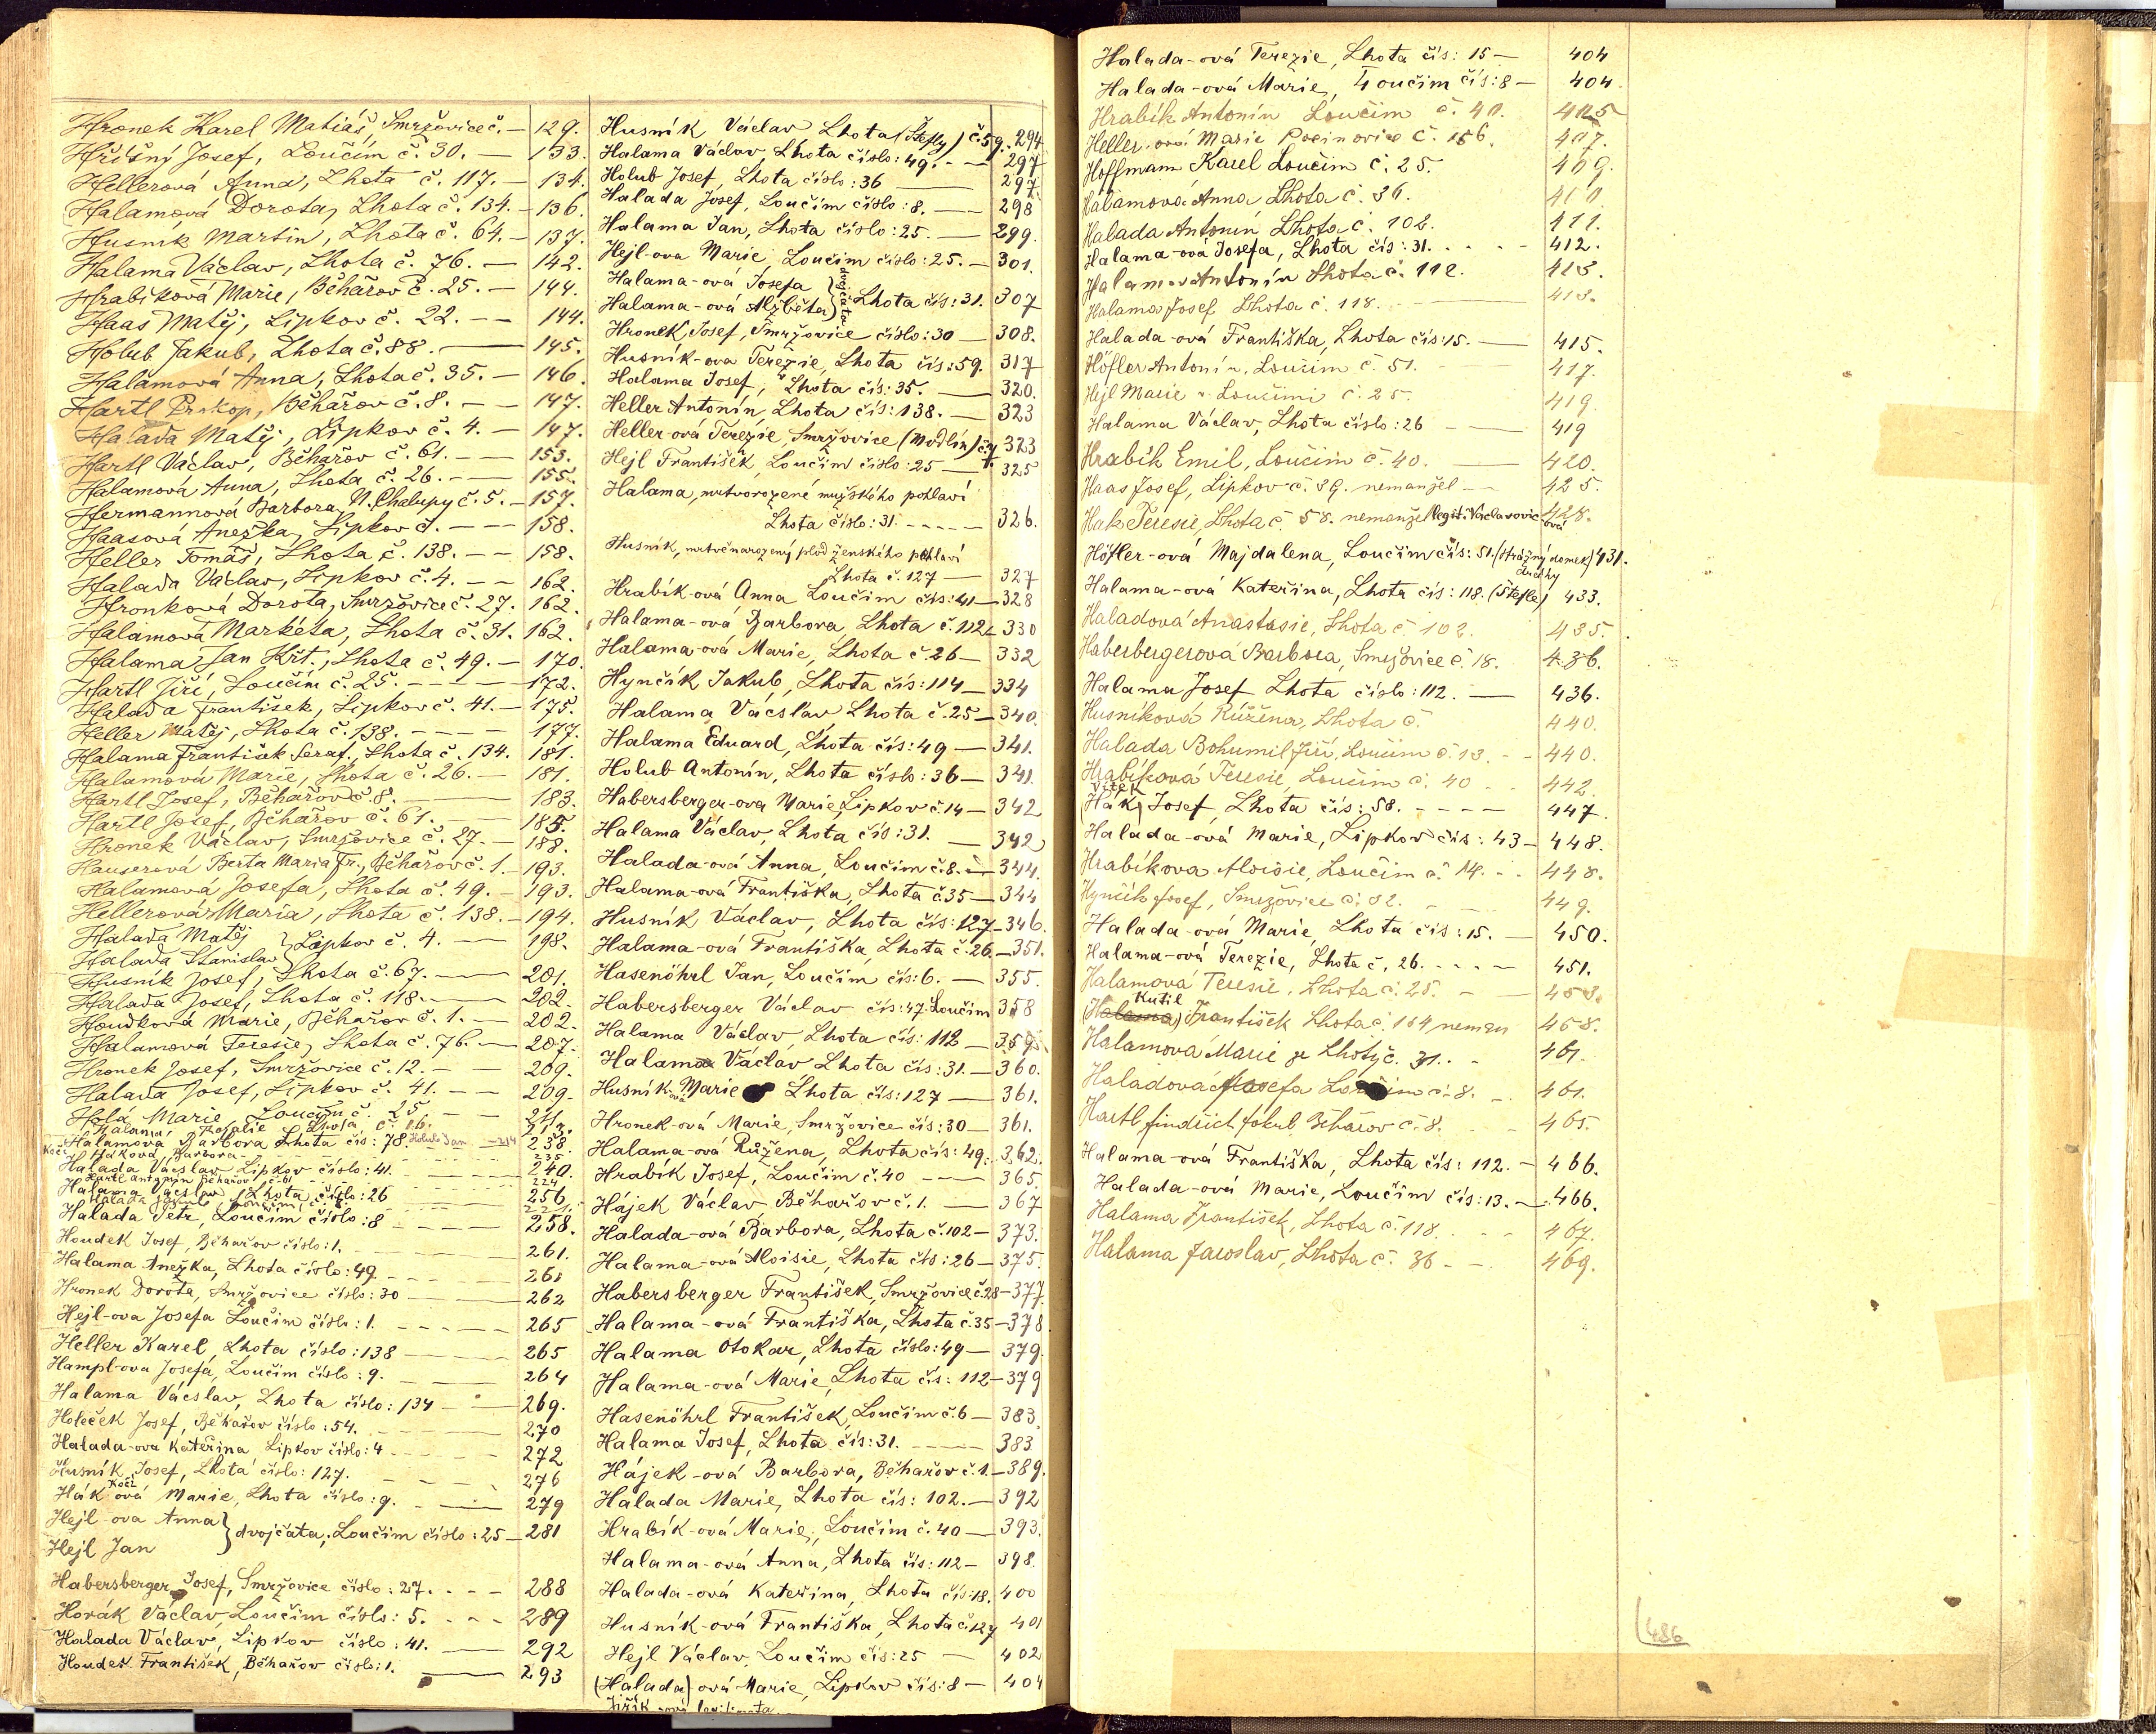 Hronek Karel Matiáš, Smržovice č. — 129.
Hříšný Josef, Loučím č. 30. — 133.
Hellerová Anna, Lhota č. 117. — 134.
Halamová Dorota, Lhota č. 134. — 136.
Husník Martin, Lhota č. 64. — 137.
Halama Václav, Lhota č. 76. — 142.
Hrabíková Marie, Běhařov č. 25. — 144.
Haas Matěj, Lipkov č. 22. — — 144.
Holub Jakub, Lhota č. 88. — 145.
Halamová Anna, Lhota č. 35. — 146.
Hartl Prokop, Běhařov č. 8. — — 147.
Halada Matěj, Lipkov č. 4. — — 147.
Hartl Václav, Běhařov č. 61. — — 153.
Halamová Anna, Lhota č. 26. — — 155.
Hermannová Barbora, N. Chalupy č. 5. — 157.
Haasová Anežka, Lipkov č. — — 158.
Heller Tomáš, Lhota č. 138. — — 158.
Halada Václav, Lipkov č. 4. — — 162.
Hronková Dorota, Smržovice č. 27. 162.
Halamová Markéta, Lhota č. 31. 162.
Halama Jan Křt., Lhota č. 49. — 170.
Hartl Jiří, Loučím č. 25. — — — 172.
Halada František, Lipkov č. 41. — 175.
Heller Matěj, Lhota č. 138. — — — 177.
Halama František Seraf., Lhota č. 134. 181.
Halamová Marie, Lhota č. 26. — 181.
Hartl Josef, Běhařov č. 8. — 183.
Hartl Josef, Běhařov č. 61. — 185.
Hronek Václav, Smržovice č. 27. — 188.
Hauserová Berta Maria Fr., Běhařov č. 1. — 193.
Halamová Josefa, Lhota č. 49. — 193.
Hellerová Maria, Lhota č. 138. — 194.
Halada Matěj
Halada Stanislav } Lipkov č. 4. — 198.
Husník Josef, Lhota č. 67. — 201.
Halada Josef, Lhota č. 118. — 202.
Houdková Marie, Běhařov č. 1. — 202.
Halamová Teresie, Lhota č. 76. — 207.
Hronek Josef, Smržovice č. 12. — — 209.
Halada Josef, Lipkov č. 41. — — 209.
Holá Marie Loučím č. 25. — —
Halama, Rosalie Lhota, č.
Halamová Barbora Lhota čís: 78 Holub Jan — 214 238.
Kočí Háková, Barbora
Halada Václav Lipkov číslo: 41. 240.
Hartl Antonín Běhařov č. 61 224
Halama Václav, Lhota číslo: 26 256
Halada Jakub, Loučím, č.
Halada Petr, Loučím číslo: 8 — 258.
Houdek Josef, Běhařov číslo: 1. 261.
Halama Anežka, Lhota číslo: 49. 261
Hronek Dorota, Smržovice číslo: 30 — 262
Hejl-ova Josefa Loučim číslo: 1. — 265
Heller Karel, Lhota číslo: 138 — 265
Hampl-ova Josefa, Loučim číslo: 9. — 264
Halama Václav, Lhota číslo: 134 — 269.
Holeček Josef, Běhařov číslo: 54. 270
Halada-ova Kateřina Lipkov číslo: 4 272
Husník Josef, Lhota číslo: 127. 276
Kočí
Hák-ová Marie, Lhota číslo: 9. — 279
Hejl-ova Anna
Hejl Jan } dvojčata, Loučim číslo: 25 — 281
Habersberger Josef, Smržovice číslo: 27. — 288
Horák Václav, Loučim číslo: 5. — 289
Halada Václav, Lipkov číslo: 41. — 292
Houdek František, Běhařov číslo: 1. — 293
Husník Václav Lhota (Štefly) č. 59. 294
Halama Václav, Lhota číslo: 49. — — 297
Holub Josef, Lhota číslo: 36 — 297.
Halada Josef, Loučim číslo: 8. — 298
Halama Jan, Lhota číslo: 25. — 299.
Hejl-ova Marie, Loučim číslo: 25. — 301.
Halama-ová Josefa
Halama-ová Alžběta } dvojčata Lhota čís: 31. 307
Hronek, Josef, Smržovice číslo: 30 — 308.
Husník-ova Terezie, Lhota čís: 59. 317
Halama Josef, Lhota čís: 35. — 320.
Heller Antonín, Lhota čís: 138. — 323
Heller-ová Terezie, Smržovice (Modlín) č. 323
Hejl František, Loučim číslo: 25 — 325
Halama, mrtvorozené mužského pohlaví
Lhota číslo: 31. — — — 326.
Husník, mrtvěnarozený plod ženského pohlaví
Lhota č. 127 — 327
Hrabík-ová Anna Loučim čís: 41 — 328
Halama-ová Barbora Lhota č. 112 — 330
Halama-ová Marie, Lhota č. 26 — 332
Hynčík Jakub, Lhota čís: 114 — 334
Halama Václav Lhota č. 25 — 340.
Halama Eduard, Lhota čís: 49 — 341.
Holub Antonín, Lhota číslo: 36 — 341.
Habersberger-ova Marie, Lipkov č. 14 — 342
Halama Václav, Lhota čís: 31. — 342
Halada-ová Anna, Loučim č. 8. — 344.
Halama-ová Františka, Lhota č. 35 — 344
Husník Václav, Lhota čís: 127 — 346.
Halama-ová Františka, Lhota č. 26. — 351.
Hasenöhrl Jan, Loučim čís: 6. — 355.
Habersberger Václav čís: 47. Loučim 358
Halama Václav, Lhota čís: 112 — 359.
Halama Václav Lhota čís: 31. — 360.
Husník-ová Marie Lhota čís: 127 — 361.
Hronek-ová Marie, Smržovice čís: 30 — 361.
Halama-ová Růžena, Lhota čís: 49. 362.
Hrabík Josef, Loučim č. 40 — 365.
Hájek Václav, Běhařov č. 1. — 367
Halada-ová Barbora, Lhota č. 102 — 373.
Halama-ová Aloisie, Lhota čís: 26 — 375.
Habersberger František, Smržovice č. 28 — 377.
Halama-ová Františka, Lhota č. 35 — 378.
Halama Otokar, Lhota číslo: 49 — 379.
Halama-ová Marie, Lhota čís: 112 — 379
Hasenöhrl František, Loučim č. 6 — 383.
Halama Josef, Lhota čís: 31. — 383
Hájek-ová Barbora, Běhařov č. 1. — 389.
Halada Marie, Lhota čís: 102. — 392
Hrabík-ová Marie, Loučim č. 40 — 393.
Halama-ová Anna, Lhota čís: 112 — 398.
Halada-ová Kateřina, Lhota čís: 18. 400
Husník-ová Františka, Lhota č. 127 401
Hejl Václav, Loučim čís: 25 — 402
(Halada)-ová Marie, Lipkov čís: 8 — 404
Jiřík-ová
Halada-ová Terezie, Lhota čís: 15 — 404
Halada-ová Marie, Loučim čís: 8 — 404.
Hrabík Antonín Loučim č. 40. 405
Heller-ová Marie Pocinovice č. 156. 407.
Hoffmann Karel Loučim č. 25. 409.
Halamová Anna Lhota č. 36. 410.
Halada Antonín Lhota č. 102. 411.
Halama-ová Josefa, Lhota čís: 31. — 412.
Halama Antonín Lhota č. 112. 413.
Halama Josef Lhota č. 118. — 413.
Halada-ová Františka, Lhota čís: 15. — 415.
Höfler Antonín, Loučim č. 51. 417.
Hejl Marie Loučimi č. 25. 419
Halama Václav, Lhota číslo: 26 — 419
Hrabík Emil, Loučim č. 40. — 420.
Haas Josef, Lipkov č. 39. nemanžel — 425.
Hak Teresie, Lhota č. 58. nemanžel legit. Václavovic-ová 428.
Höfler-ová Majdalena, Loučim čís: 51. (strážný domek) 431.
dráhy
Halama-ová Kateřina, Lhota čís: 118. (Štefle) 433.
Haladová Anastasie, Lhota č. 102. 435.
Habersbergerová Barbora, Smržovice č. 18. 436.
Halama Josef Lhota číslo: 112. — 436.
Husníková Růžena, Lhota č. 440.
Halada Bohumil Jiří, Loučim č. 13. — 440.
Hrabíková Teresie, Loučim č. 40 — 442.
Vítek
(Hák) Josef, Lhota čís: 58. — — — 447.
Halada-ová Marie, Lipkov čís: 43 — 448.
Hrabíkova Aloisie, Loučim č. 14. — 448.
Hynčík Josef, Smržovice č. 32. — 449.
Halada-ová Marie, Lhota čís: 15. — 450.
Halama-ová Terezie, Lhota č. 26. — 451.
Halamová Teresie, Lhota č. 25. — 453.
Kutil
(Halama) František Lhota č. 134 neman 458.
Halamová Marie ze Lhoty č. 31. — 461.
Haladová Josefa Loučim č. 8. — 461.
Hartl Jindřich Jakub, Běhařov č. 8. — 465.
Halama-ová Františka, Lhota čís: 112. — 466.
Halada-ová Marie, Loučim čís: 13. — 466.
Halama František, Lhota č. 118. — 467.
Halama Jaroslav, Lhota č. 36 — 469.
486